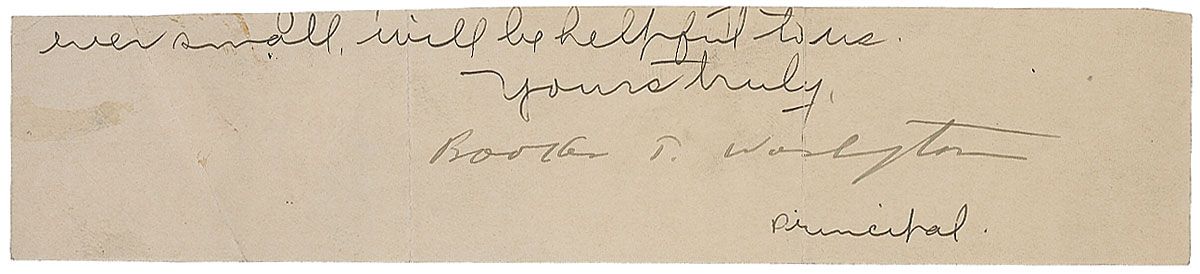 ever small, will be helpful to us.
Yours truly,
Booker T. Washington
principal.